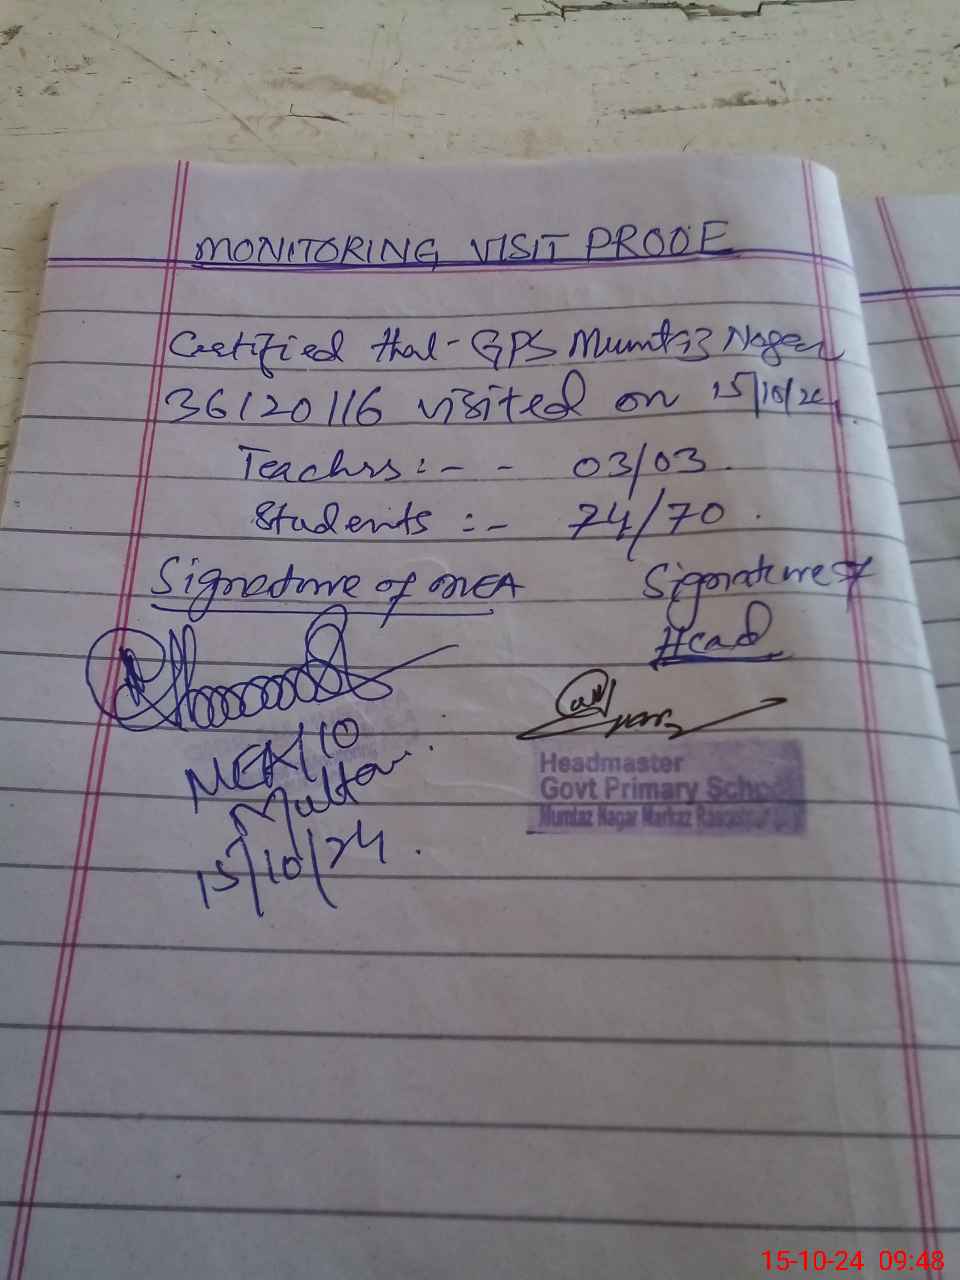 MONITORING VISIT PROOF
Certified that - GPS Mumtaz Nagar
36120116 visited on 15/10/24
Teachrs :- - 03/03.
Students :- 74/70.
Signature of MEA
Signature of
Head
MEA 110
Multan.
15/10/24.
Headmaster
Govt Primary School
Mumtaz Nagar Markaz
15-10-24 09:48